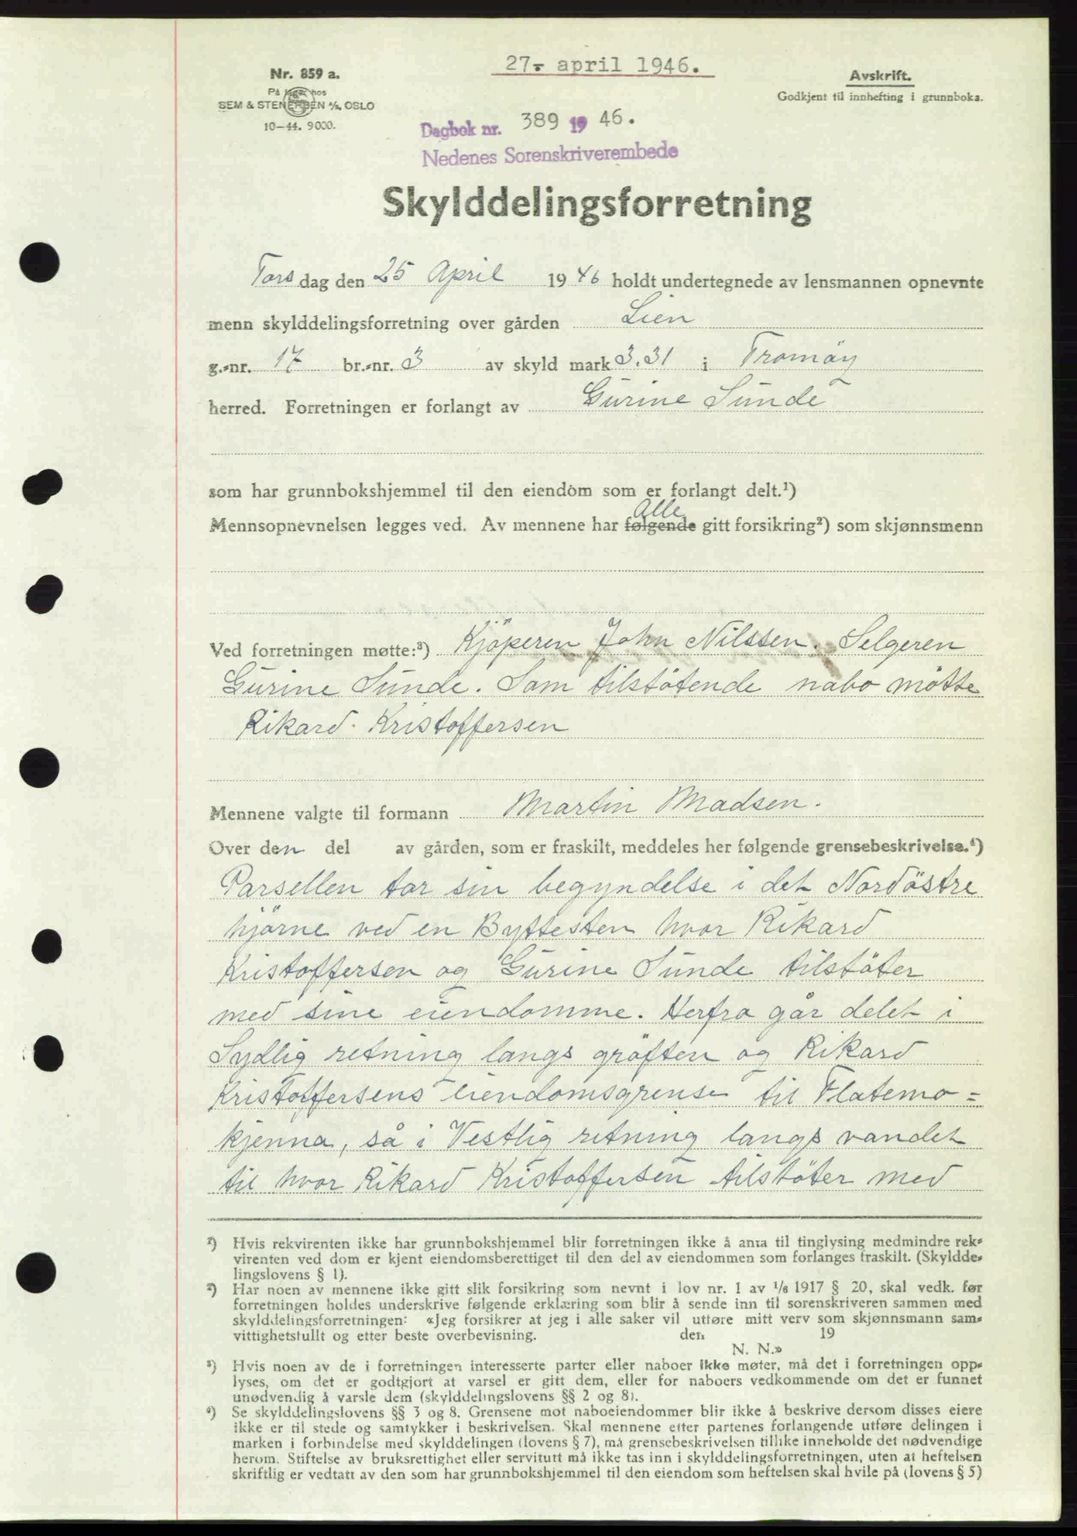 27- april 1946.
Nr. 859 a.
På lager hos
SEM & STENERSEN A/S, OSLO
10-44. 9000.
Avskrift.
Godkjent til innhefting i grunnboka.
Dagbok nr. 389 19 46.
Nedenes Sorenskriverembede
Skylddelingsforretning
Torsdag den 25 April 1946 holdt undertegnede av lensmannen opnevnte
menn skylddelingsforretning over gården Lien
g.-nr. 17 br.-nr. 3 av skyld mark 3.31 i Tromöy
herred. Forretningen er forlangt av Gurine Sunde
som har grunnbokshjemmel til den eiendom som er forlangt delt.¹)
Alle
Mennsopnevnelsen legges ved. Av mennene har følgende gitt forsikring²) som skjønnsmenn
Ved forretningen møtte:³) Kjöperen John Nilssen. Selgeren
Gurine Sunde. Som tilstötende nabo mötte
Rikard Kristoffersen
Mennene valgte til formann Martin Madsen.
Over den del av gården, som er fraskilt, meddeles her følgende grensebeskrivelse.⁴)
Parsellen tar sin begyndelse i det Nordöstre
hjörne ved en Byttesten hvor Rikard
Kristoffersen og Gurine Sunde tilstöter
med sine eiendomme. Herfra går delet i
Sydlig retning langs gröften og Rikard
Kristoffersens eiendomsgrense til Flatemo=
kjenna, så i Vestlig retning langs vandet
til hvor Rikard Kristoffersen tilstöter med
¹) Hvis rekvirenten ikke har grunnbokshjemmel blir forretningen ikke å anta til tinglysing medmindre rek-
virenten ved dom er kjent eiendomsberettiget til den del av eiendommen som forlanges fraskilt. (Skyldde-
lingslovens § 1).
²) Har noen av mennene ikke gitt slik forsikring som nevnt i lov nr. 1 av 1/6 1917 § 20, skal vedk. før
forretningen holdes underskrive følgende erklæring som blir å sende inn til sorenskriveren sammen med
skylddelingsforretningen: «Jeg forsikrer at jeg i alle saker vil utføre mitt verv som skjønnsmann sam-
vittighetsfullt og etter beste overbevisning. den 19
N. N.»
³) Hvis noen av de i forretningen interesserte parter eller naboer ikke møter, må det i forretningen opp-
lyses, om det er godtgjort at varsel er gitt dem, eller for naboers vedkommende om det er funnet
unødvendig å varsle dem (skylddelingslovens §§ 2 og 8).
⁴) Se skylddelingslovens §§ 3 og 8. Grensene mot naboeiendommer blir ikke å beskrive dersom disses eiere
ikke er til stede og samtykker i beskrivelsen. Skal mennene etter partenes forlangende utføre delingen i
marken i forbindelse med skylddelingen (lovens § 7), må grensebeskrivelsen tillike inneholde det nødvendige
herom. Stiftelse av bruksrettighet eller servitutt må ikke tas inn i skylddelingsforretningen, uten at heftelsen
skriftlig er vedtatt av den som har grunnbokshjemmel til den eiendom som heftelsen skal hvile på (lovens § 5)